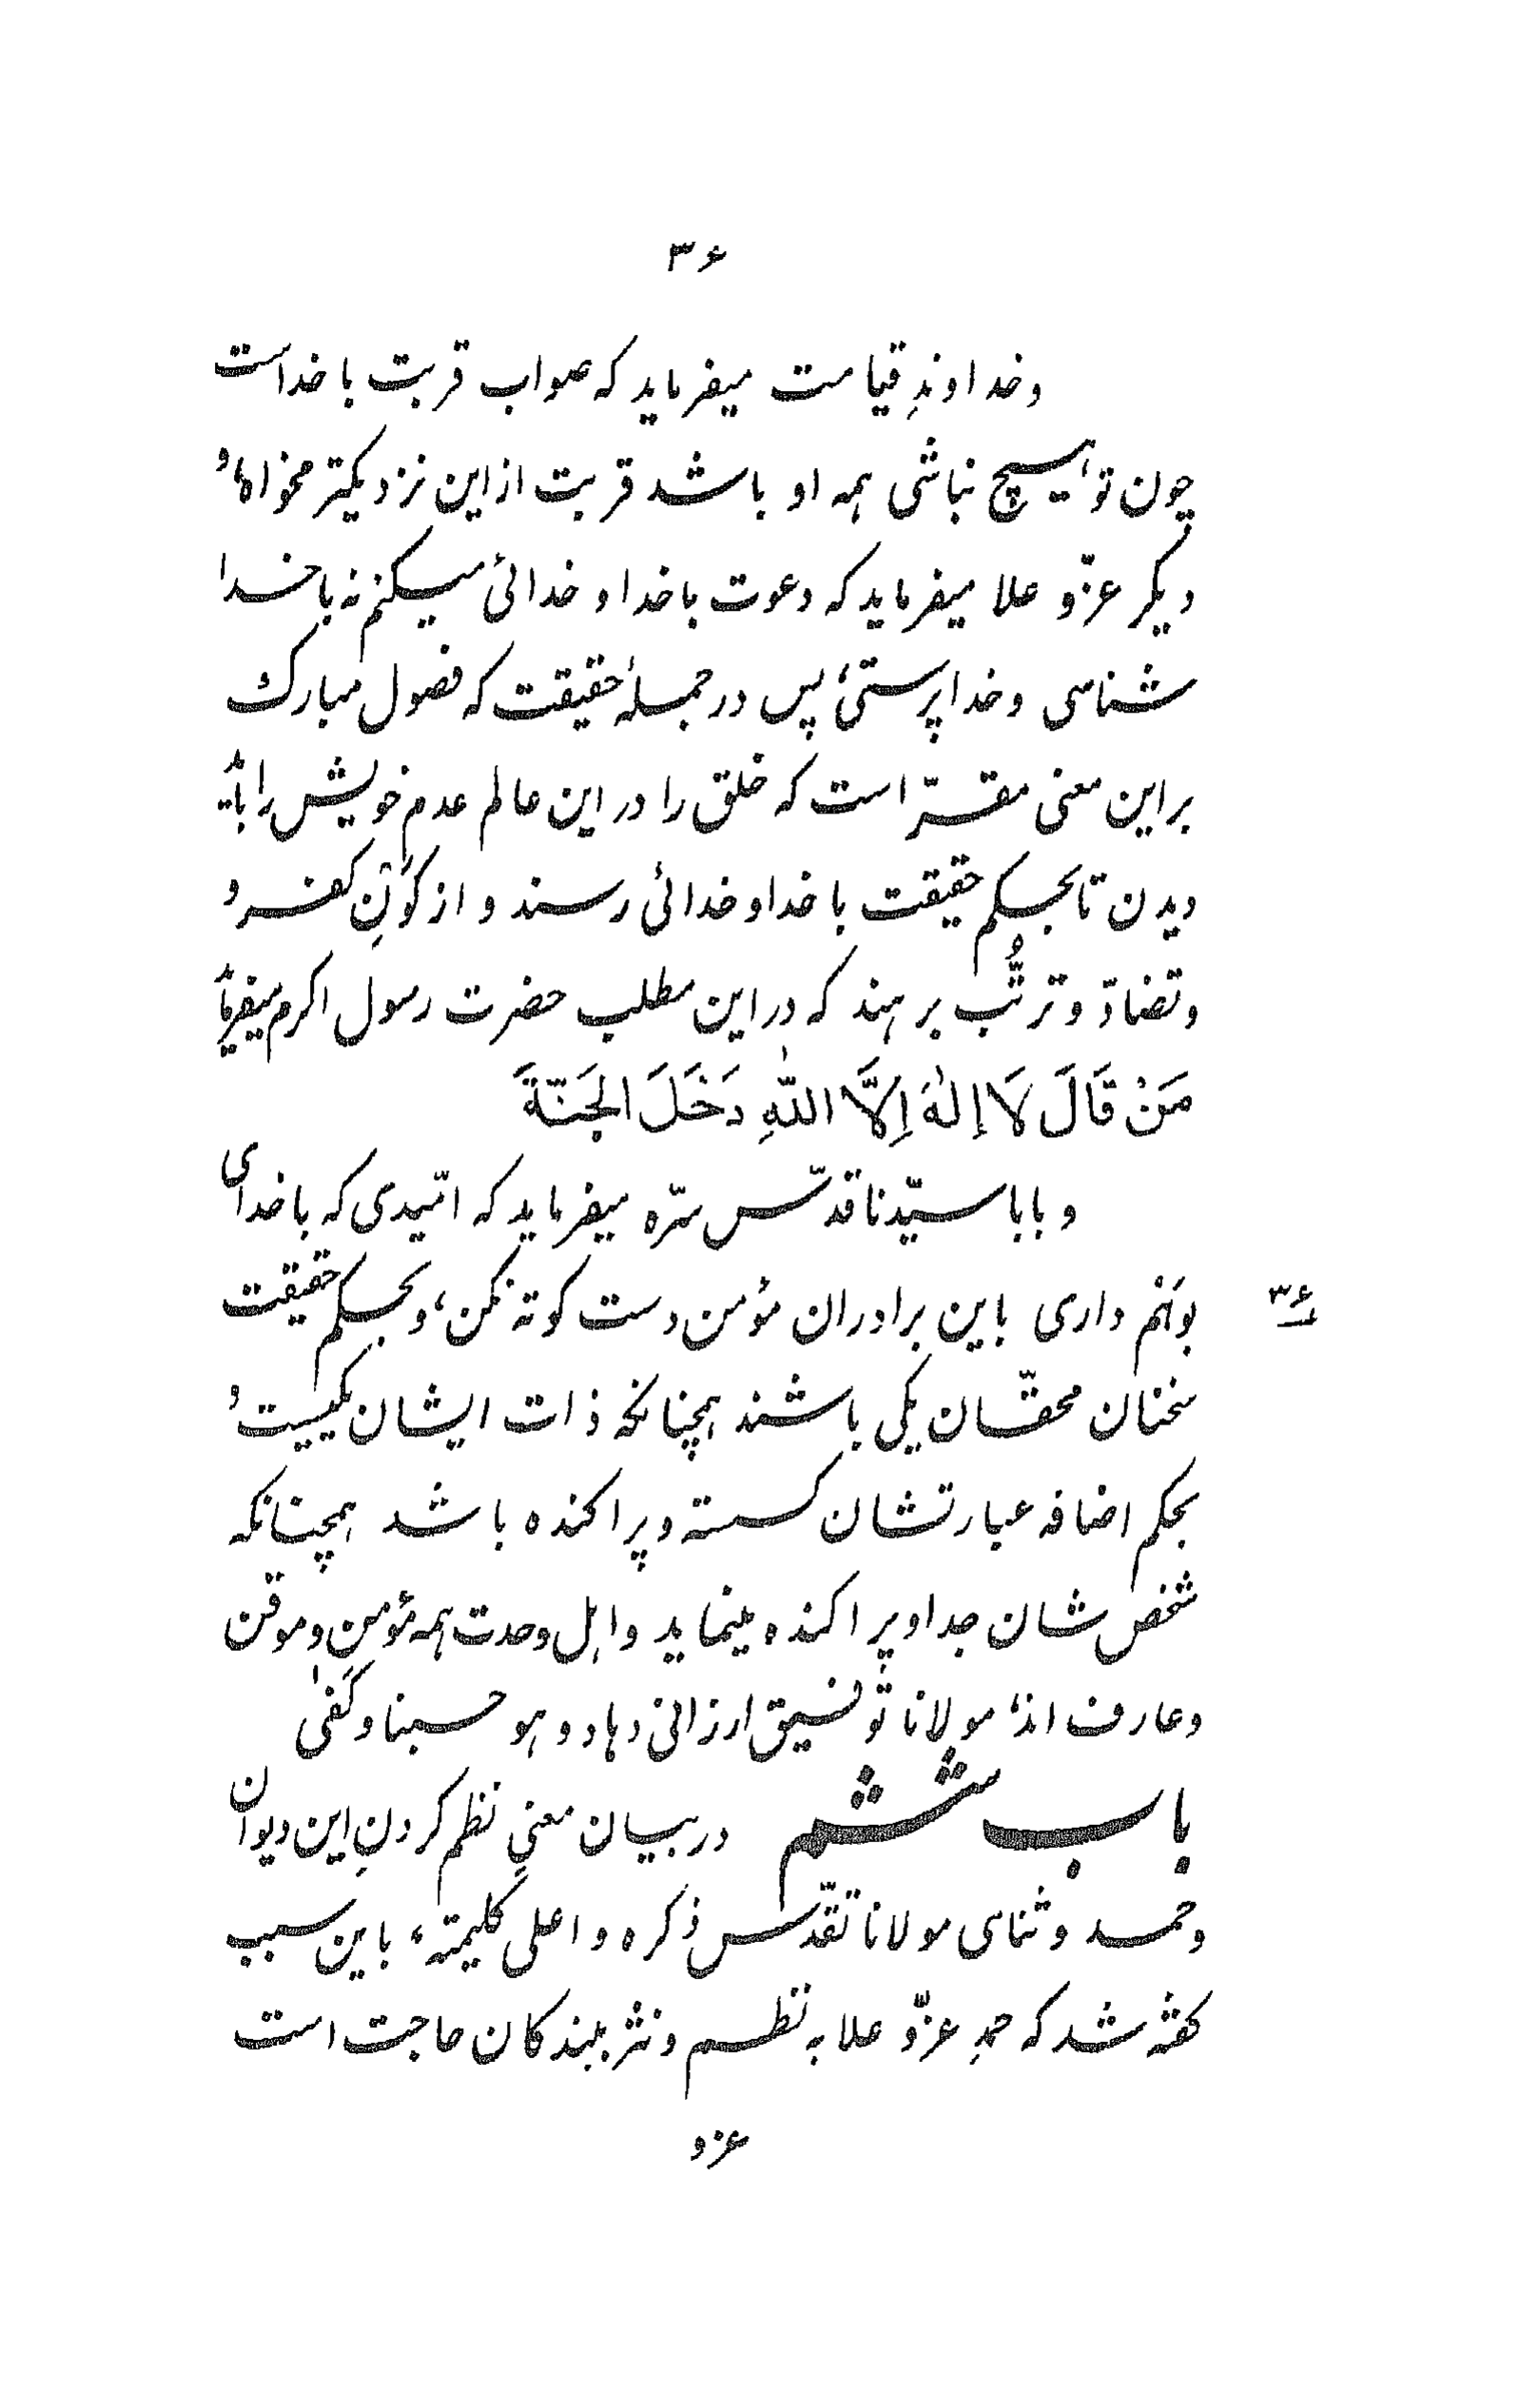 ۳۶
وخداوندِ قیامت میفرماید که صواب قربت با خداست
چون تو هیچ نباشی همه او باشد قربت از این نزدیکتر مخواه، و
دیکر عزّ و علا میفرماید که دعوت با خدا و خدائی میکنم نه با خدا
شناسی و خدا پرستی، پس در جملهٔ حقیقت که فصول مبارک
بر این معنی مقرّر است که خلق را در این عالم عدم خویش را باید
دیدن تا بحکم حقیقت با خدا و خدائی رسند و از کَوْنِ کفر و
و تضادّ و ترتُّب برهند که در این مطلب حضرت رسول اکرم میفرماید
مَنْ قَالَ لَا إِلٰهَ إِلَّا اللّٰهِ دَخَلَ الجَنّةَ
و بابا سیّدنا قدّس سرّه میفرماید که امّیدی که با خدای
بوَهْم داری باین برادران مؤمن دست کوته نکن، و بحکم حقیقت
۳۶
سخنان محقّان یکی باشند همچنانکه ذات ایشان یکیست، و
بحکم اضافه عبارتشان کسسته و پراکنده باشد همچنانکه
شخص شان جدا و پراکنده مینماید و اهل وحدت همه مؤمن و موقن
و عارف اند، مولانا توفیق ارزانی دهاد و هو حسبنا و کَفیٰ
باب ششم در بیان معنیِ نظم کردنِ این دیوان
و حمد و ثنای مولانا تقدّس ذکره و اعلی کلیمته، باین سبب
کفته شد که حمدِ عزّ و علا به نظم و نثر ببندکان حاجت است
عز و